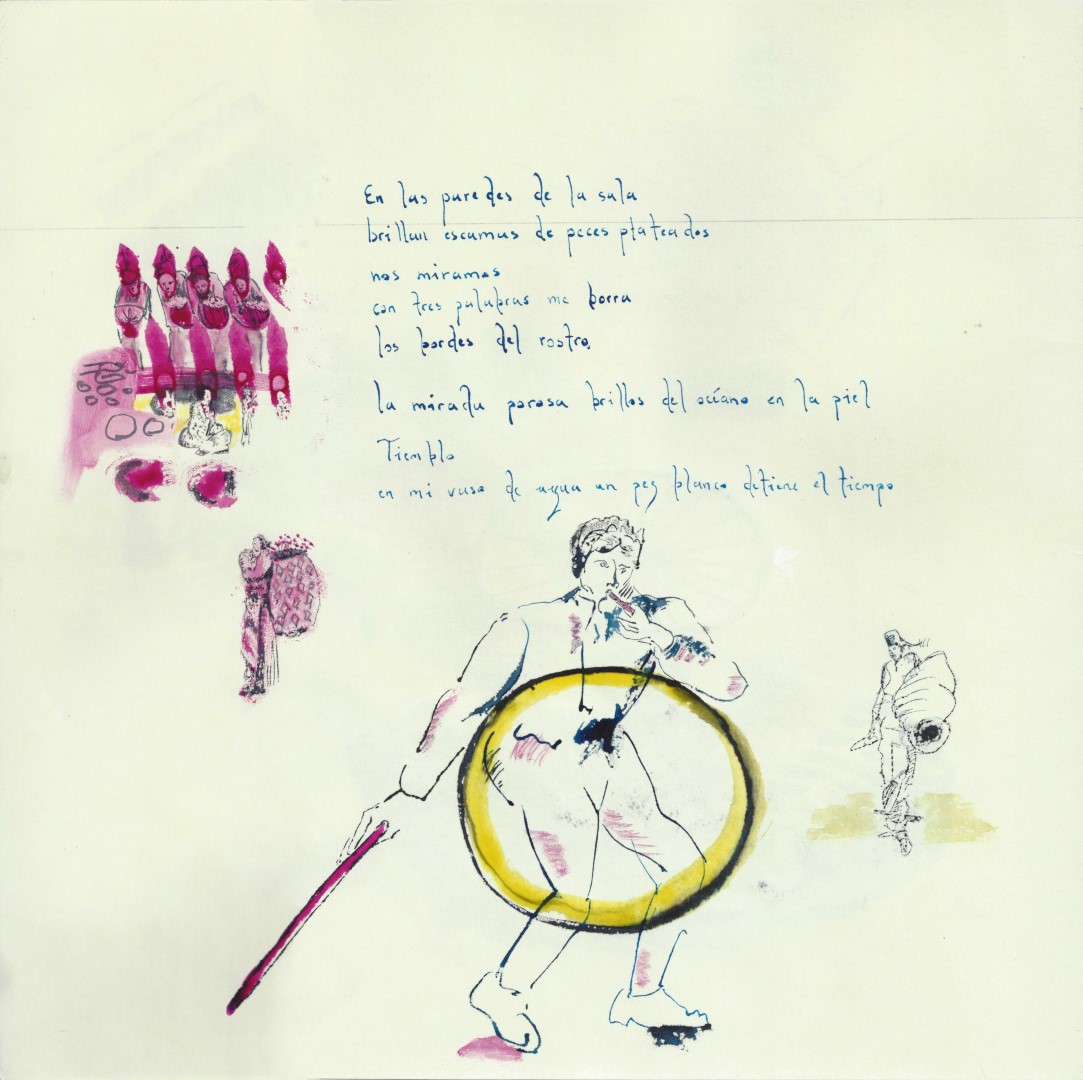 En las paredes de la sala
brillan escamas de peces plateados
nos miramos
con tres palabras me borra
los bordes del rostro.
la mirada porosa brillos del océano en la piel
Tiemblo
en mi vaso de agua un pez blanco detiene el tiempo